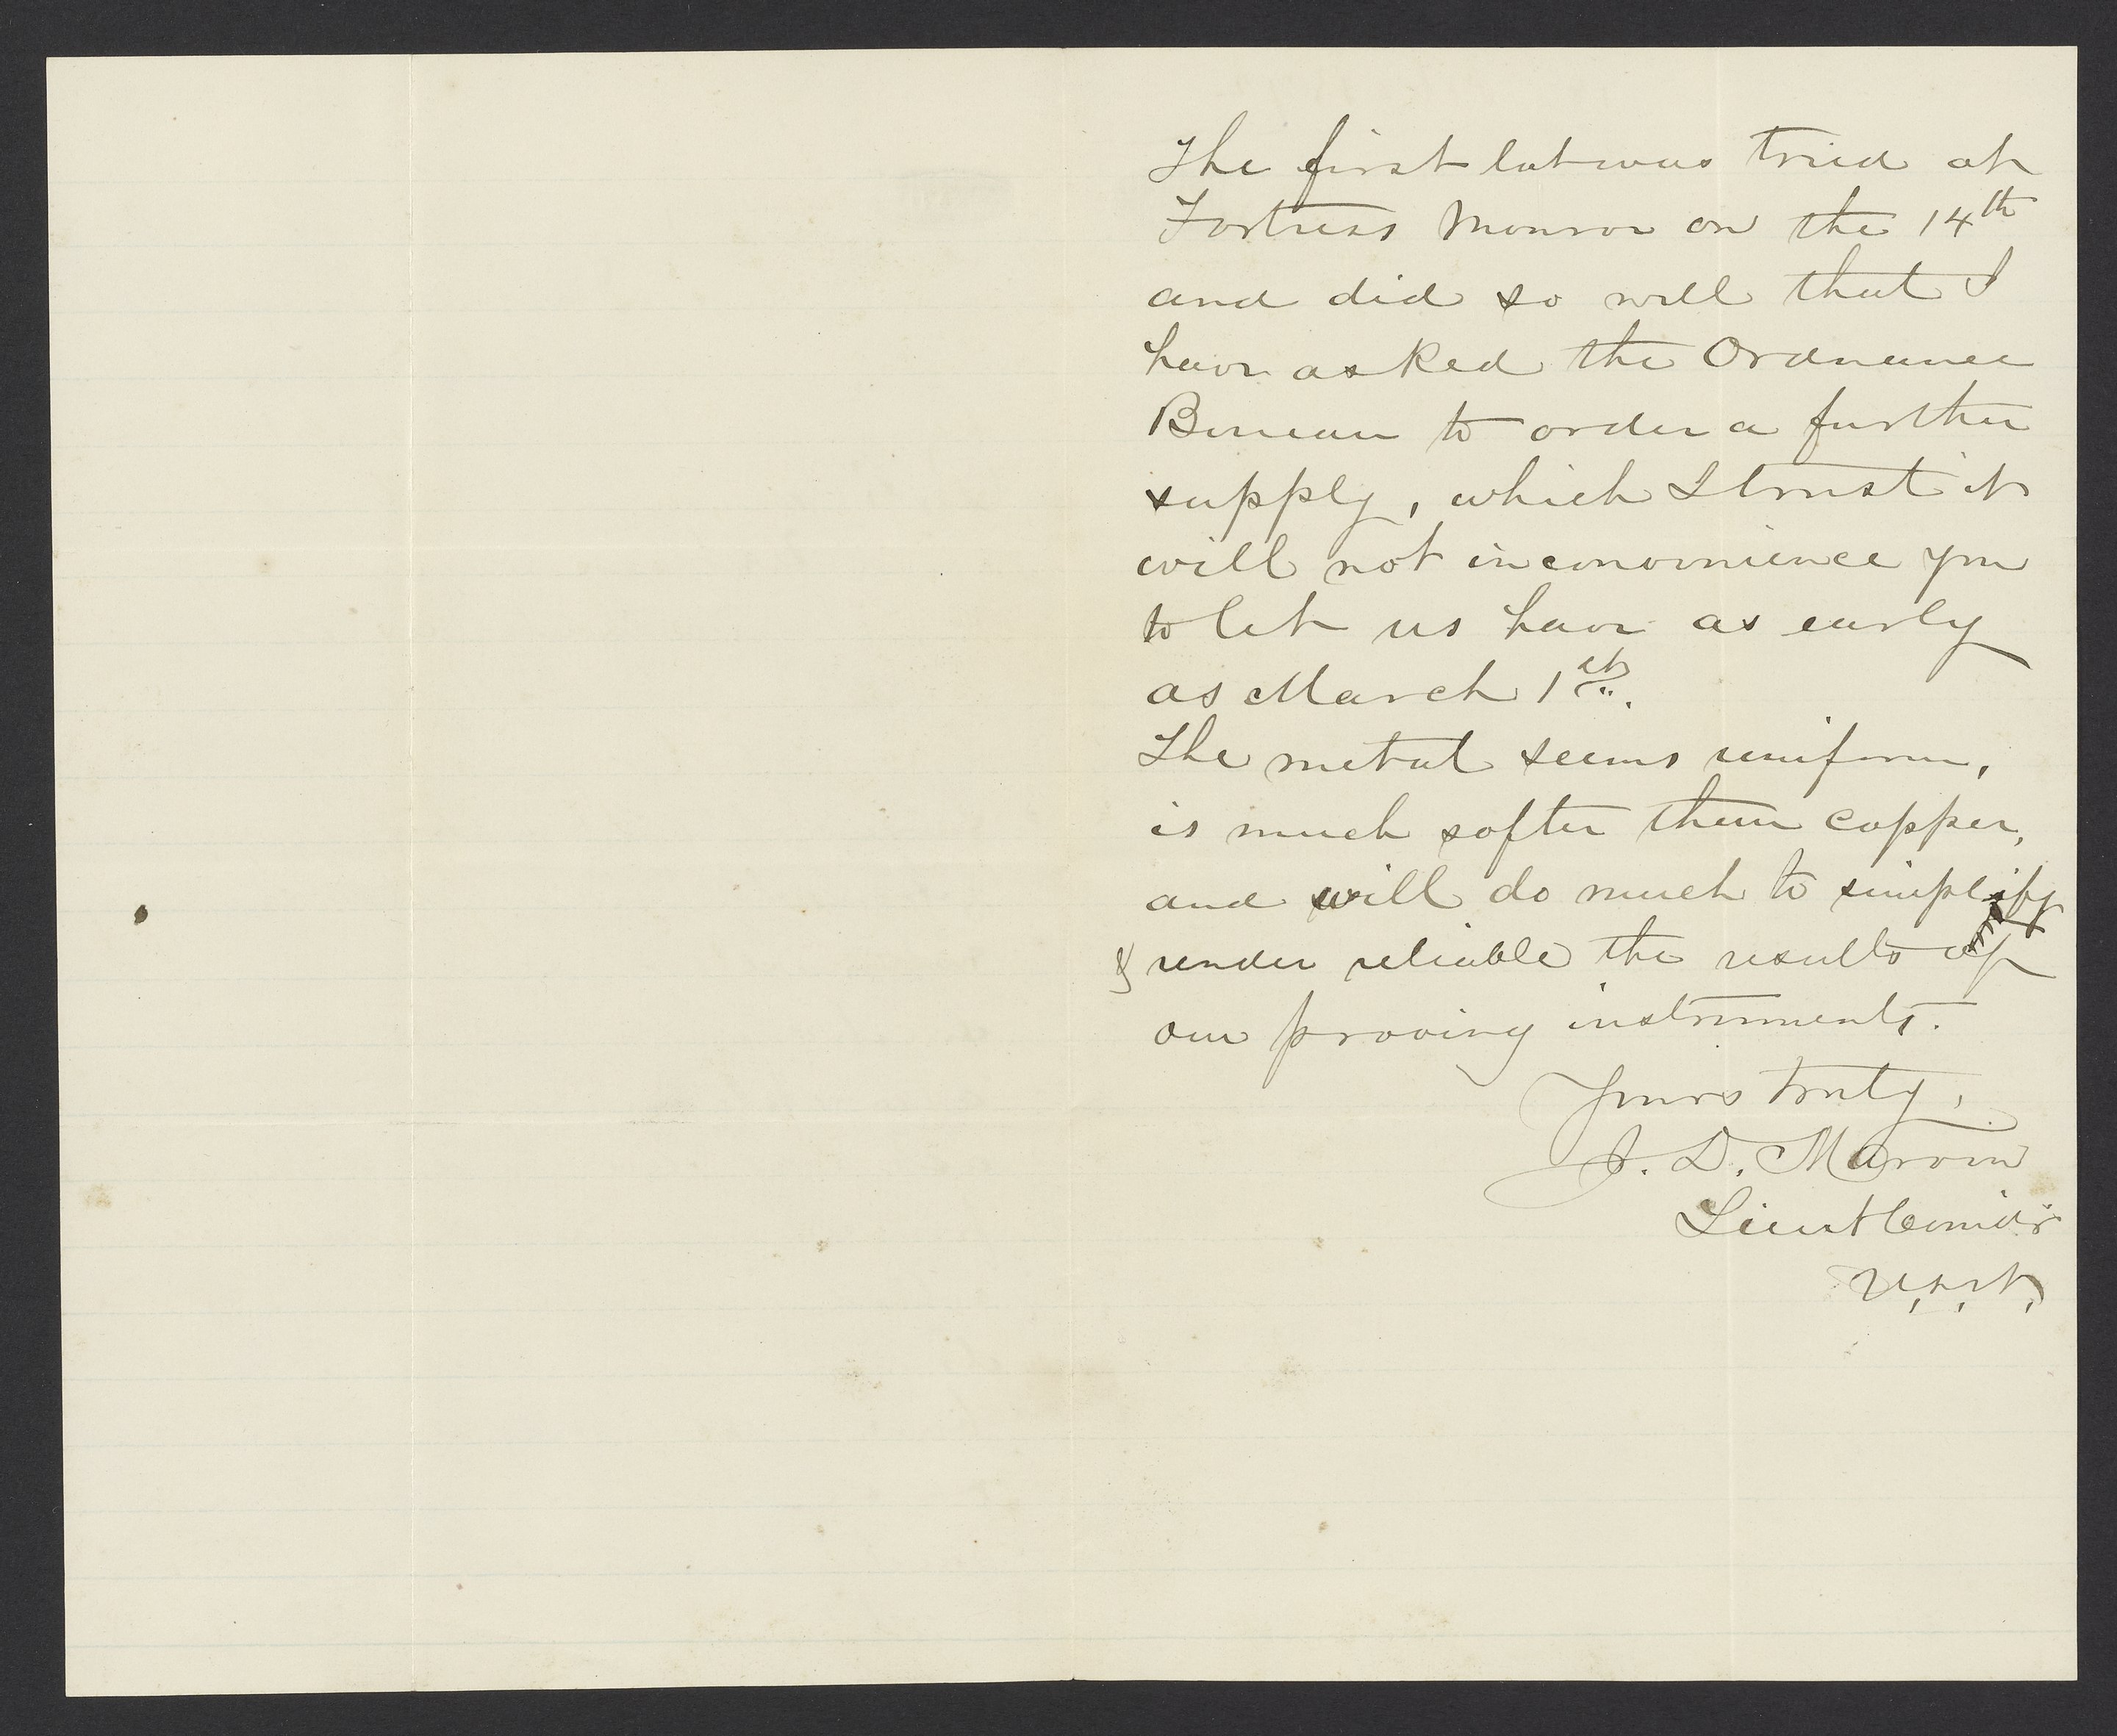 The first lot was tried at
Fortress Monroe on the 14th
and did so well that I
have asked the Ordnance
Bureau to order a further
supply, which I trust it
will not inconvenience you
to let us have as early
as March 1st.
The metal seems uniform,
is much softer than copper,
and will do much to simplify
& render reliable the results of
our proving instruments.
Yours truly,
J. D. Marvin
Lieut Comd'r
U.S.N.